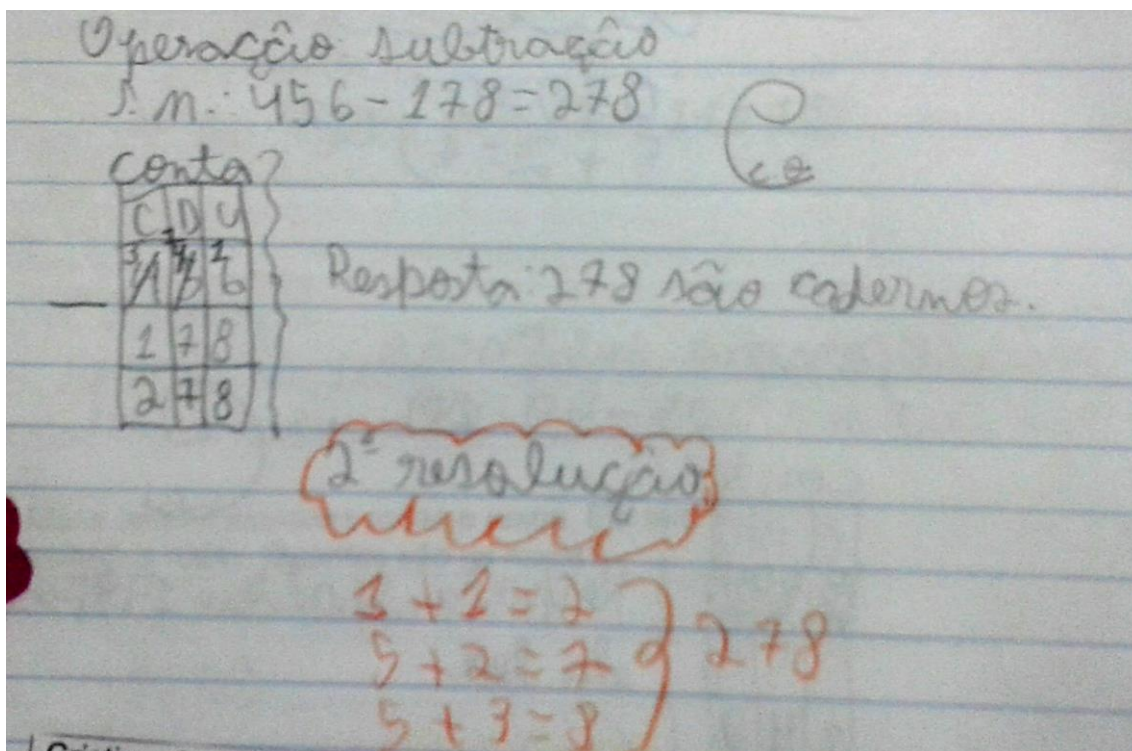 Operação subtração
S. m.: 456 - 178 = 278
Ce
conta
C D U
3 14 1
4 5 6
1 7 8
2 7 8
Resposta: 278 são cadernos.
2ª resolução
1 + 1 = 2
5 + 2 = 7
5 + 3 = 8
278